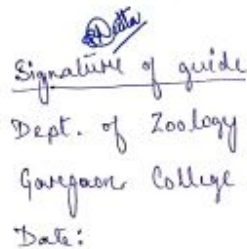 Signature of guide
Dept. of Zoology
Gargaon College
Date: